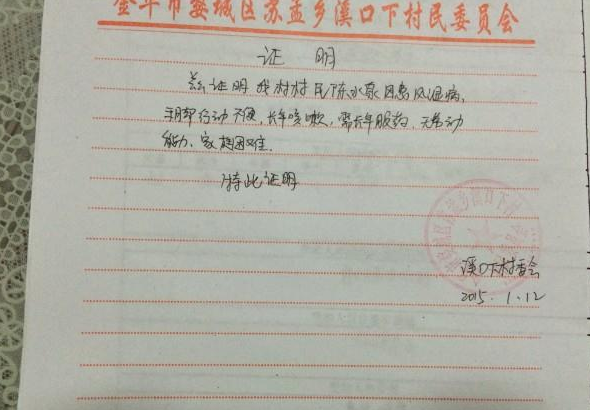 金华市婺城区苏孟乡溪口下村民委员会
证 明
兹证明我村村民陈水泉因患风湿病,
手脚行动不便,长年咳嗽,需长年服药,无劳动
能力、家庭困难.
特此证明
溪口下村委会
2015.1.12